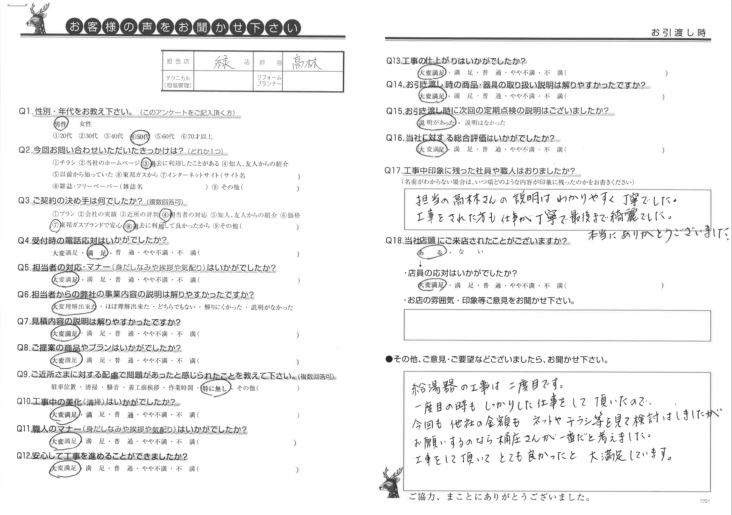 お客様の声をお聞かせ下さい
担当店 緑店 担当 高林
テクニカル(現場管理) リフォームプランナー
Q1.性別・年代をお教え下さい。(このアンケートをご記入頂く方)
男性 女性
①20代 ②30代 ③40代 ④50代 ⑤60代 ⑥70才以上
Q2.今回お問い合わせいただいたきっかけは?(どれか1つ)
①チラシ ②当社のホームページ ③過去に利用したことがある ④知人、友人からの紹介
⑤以前から知っていた ⑥東邦ガスから ⑦インターネットサイト(サイト名 )
⑧雑誌・フリーペーパー(雑誌名 ) ⑨その他( )
Q3.ご契約の決め手は何でしたか?(複数回答可)
①プラン ②会社の実績 ③近所の評判 ④担当者の対応 ⑤知人、友人からの紹介 ⑥価格
⑦東邦ガスブランドで安心 ⑧過去に利用して良かったから ⑨その他( )
Q4.受付時の電話応対はいかがでしたか?
大変満足・満 足・普 通・やや不満・不 満( )
Q5.担当者の対応・マナー(身だしなみや挨拶や気配り)はいかがでしたか?
大変満足・満 足・普 通・やや不満・不 満( )
Q6.担当者からの弊社の事業内容の説明は解りやすかったですか?
大変理解出来た・ほぼ理解出来た・どちらでもない・解りにくかった・説明がなかった
Q7.見積内容の説明は解りやすかったですか?
大変満足・満 足・普 通・やや不満・不 満( )
Q8.ご提案の商品やプランはいかがでしたか?
大変満足・満 足・普 通・やや不満・不 満( )
Q9.ご近所さまに対する配慮で問題があったと感じられたことを教えて下さい。(複数回答可)
駐車位置・清掃・騒音・着工前挨拶・作業時間・特に無し・その他( )
Q10.工事中の美化(清掃)はいかがでしたか?
大変満足・満 足・普 通・やや不満・不 満( )
Q11.職人のマナー(身だしなみや挨拶や気配り)はいかがでしたか?
大変満足・満 足・普 通・やや不満・不 満( )
Q12.安心して工事を進めることができましたか?
大変満足・満 足・普 通・やや不満・不 満( )
お引渡し時
Q13.工事の仕上がりはいかがでしたか?
大変満足・満 足・普 通・やや不満・不 満( )
Q14.お引き渡し時の商品・器具の取り扱い説明は解りやすかったですか?
大変満足・満 足・普 通・やや不満・不 満( )
Q15.お引き渡し時に次回の定期点検の説明はございましたか?
説明があった・説明はなかった
Q16.当社に対する総合評価はいかがでしたか?
大変満足・満 足・普 通・やや不満・不 満( )
Q17.工事中印象に残った社員や職人はおりましたか?
(名前がわからない場合は、いつ頃どのような内容が印象に残ったのかをお書きください)
担当の高林さんの説明はわかりやすく丁寧でした。
工事をされた方も仕事が丁寧で最後まで綺麗でした。
本当にありがとうございました
Q18.当社店頭にご来店されたことがございますか?
ある・な い
・店員の応対はいかがでしたか?
大変満足・満 足・普 通・やや不満・不 満( )
・お店の雰囲気・印象等ご意見をお聞かせ下さい。
●その他、ご意見・ご要望などございましたら、お聞かせ下さい。
給湯器の工事は二度目です。
一度目の時もしっかりした仕事をして頂いたので、
今回も他社の金額もネットやチラシ等を見て検討はしましたが
お願いするのなら桶庄さんが一番だと考えました。
工事をして頂いてとても良かったと大満足しています。
ご協力、まことにありがとうございました。